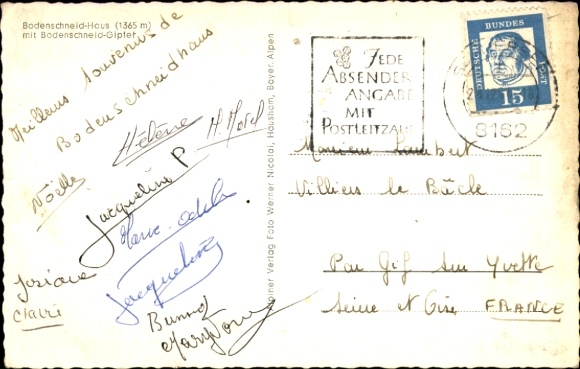 Bodenschneid-Haus (1365 m)
mit Bodenschneid-Gipfel
Meilleurs Souvenirs de
Bodenschneidhaus
Hélène
M. Morel
Noëlle
Jacqueline P
Marie-Odile
Jacqueline
Josiane
Claire
Bruno
Verlag Foto Werner Nicolai, Hausham, Bayer. Alpen
JEDE
ABSENDER
ANGABE
MIT
POSTLEITZAHL
DEUTSCHE BUNDESPOST
15
8162
Monsieur Lambert
Villiers le Bâcle
Par Gif sur Yvette
Seine et Oise FRANCE